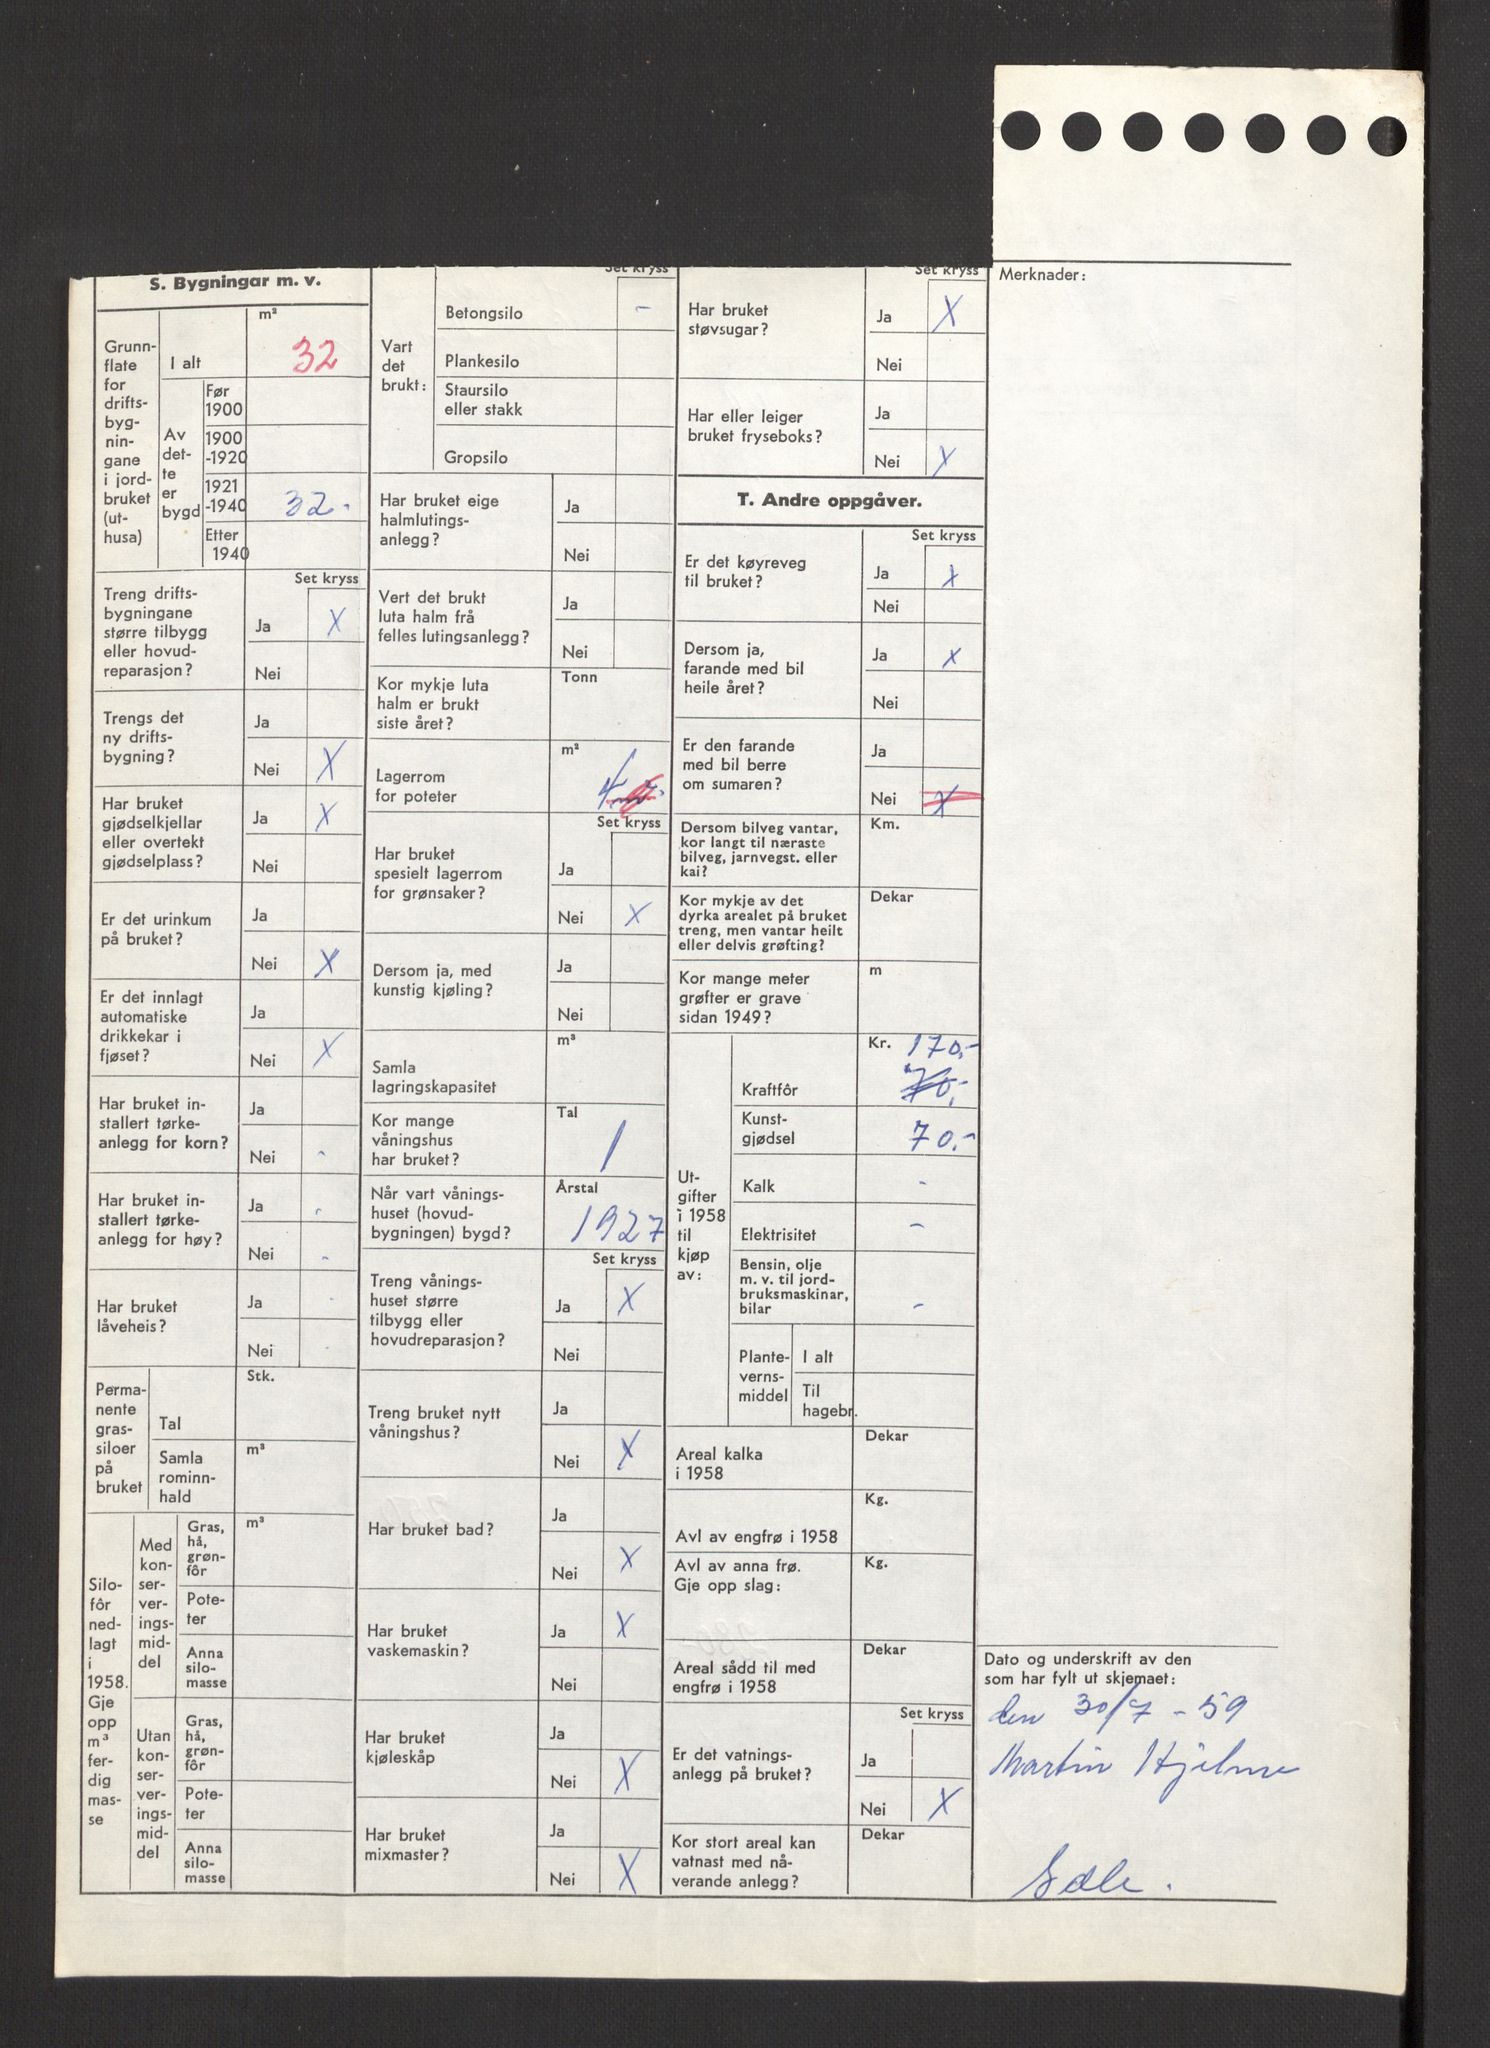 S. Bygningar m. v.
m²
Grunn-
flate
for
drifts-
byg-
nin-
gane
i jord-
bruket
(ut-
husa)
I alt
32
Av
det-
te
er
bygd
Før
1900
1900
-1920
1921
-1940
32.-
Etter
1940
Set kryss
Treng drifts-
bygningane
større tilbygg
eller hovud-
reparasjon?
Ja X
Nei
Trengs det
ny drifts-
bygning?
Ja
Nei X
Har bruket
gjødselkjellar
eller overtekt
gjødselplass?
Ja X
Nei
Er det urinkum
på bruket?
Ja
Nei X
Er det innlagt
automatiske
drikkekar i
fjøset?
Ja
Nei X
Har bruket in-
stallert tørke-
anlegg for korn?
Ja
Nei -
Har bruket in-
stallert tørke-
anlegg for høy?
Ja -
Nei -
Har bruket
låveheis?
Ja -
Nei -
Perma-
nente
gras-
siloer
på
bruket
Stk.
Tal
Samla
rominn-
hald
m³
Silo-
fôr
ned-
lagt
i
1958.
Gje
opp
m³
fer-
dig
mas-
se
Med
kon-
ser-
ver-
ings-
mid-
del
Gras,
hå,
grøn-
fôr
m³
Pote-
ter
Anna
silo-
masse
Utan
kon-
ser-
ver-
ings-
mid-
del
Gras,
hå,
grøn-
fôr
Pote-
ter
Anna
silo-
masse
Set kryss
Vart
det
brukt:
Betongsilo -
Plankesilo
Staursilo
eller stakk
Gropsilo
Har bruket eige
halmlutings-
anlegg?
Ja
Nei
Vert det brukt
luta halm frå
felles lutingsanlegg?
Ja
Nei
Kor mykje luta
halm er brukt
siste året?
Tonn
Lagerrom
for poteter
m²
4
Set kryss
Har bruket
spesielt lagerrom
for grønsaker?
Ja
Nei X
Dersom ja, med
kunstig kjøling?
Ja
Nei
Samla
lagringskapasitet
m³
Kor mange
våningshus
har bruket?
Tal
1
Når vart vånings-
huset (hovud-
bygningen) bygd?
Årstal
1927
Set kryss
Treng vånings-
huset større
tilbygg eller
hovudreparasjon?
Ja X
Nei
Treng bruket nytt
våningshus?
Ja
Nei X
Har bruket bad?
Ja
Nei X
Har bruket
vaskemaskin?
Ja X
Nei
Har bruket
kjøleskåp
Ja
Nei X
Har bruket
mixmaster?
Ja
Nei X
Set kryss
Har bruket
støvsugar?
Ja X
Nei
Har eller leiger
bruket fryseboks?
Ja
Nei X
T. Andre oppgåver.
Set kryss
Er det køyreveg
til bruket?
Ja X
Nei
Dersom ja,
farande med bil
heile året?
Ja X
Nei
Er den farande
med bil berre
om sumaren?
Ja
Nei X
Dersom bilveg vantar,
kor langt til næraste
bilveg, jarnvegst. eller
kai?
Km.
Kor mykje av det
dyrka arealet på bruket
treng, men vantar heilt
eller delvis grøfting?
Dekar
Kor mange meter
grøfter er grave
sidan 1949?
m
Ut-
gifter
i 1958
til
kjøp
av:
Kr. 170,-
Kraftfôr 70,-
Kunst-
gjødsel 70.-
Kalk -
Elektrisitet -
Bensin, olje
m. v. til jord-
bruksmaskinar,
bilar -
Plante-
verns-
middel
I alt
Til
hagebr.
Areal kalka
i 1958
Dekar
Avl av engfrø i 1958
Kg.
Avl av anna frø.
Gje opp slag:
Kg.
Areal sådd til med
engfrø i 1958
Dekar
Set kryss
Er det vatnings-
anlegg på bruket?
Ja
Nei X
Kor stort areal kan
vatnast med nå-
verande anlegg?
Dekar
Merknader:
Dato og underskrift av den
som har fylt ut skjemaet:
den 30/7 - 59
Martin Hjelme